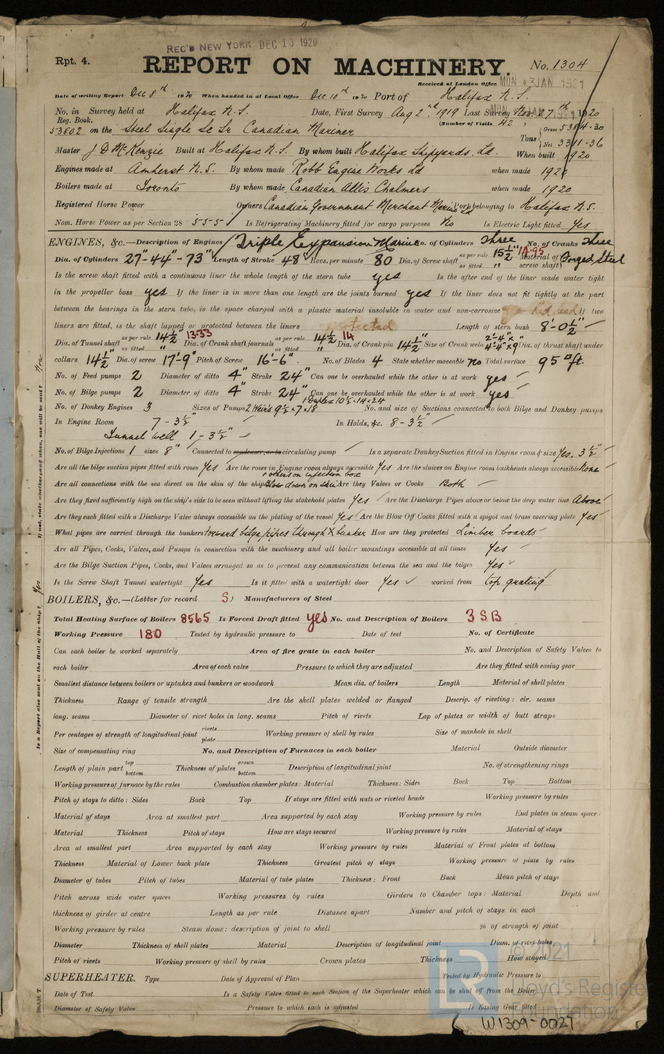 REC'D NEW YORK DEC 13 1920
Rpt. 4.
REPORT ON MACHINERY.
No. 1304
Received at London Office MON 3 JAN 1921
Date of writing Report Dec 8th 1920 When handed in at Local Office Dec 10th 1920 Port of Halifax N.S.
No. in Survey held at Halifax N.S. Date, First Survey Aug 2nd 1919 Last Survey Nov. 27th 1920
Reg. Book. (Number of Visits 42)
53802 on the Steel Single Sc Sr Canadian Mariner Tons Gross Net 3311.36
Master J D McKenzie Built at Halifax N.S. By whom built Halifax Shipyards Ld. When built 1920
Engines made at Amherst N.S. By whom made Robb Engine Works Ld when made 1920
Boilers made at Toronto By whom made Canadian Allis Chalmers when made 1920
Registered Horse Power Owners Canadian Government Merchant Marine Ld Port belonging to Halifax N.S.
Nom. Horse Power as per Section 28 555 Is Refrigerating Machinery fitted for cargo purposes No Is Electric Light fitted Yes
ENGINES, &c.—Description of Engines Triple Expansion Marine No. of Cylinders Three No. of Cranks Three
Dia. of Cylinders 27-44-73" Length of Stroke 48" Revs. per minute 80 Dia. of Screw shaft as per rule 14.95 as fitted 15½" Material of screw shaft Forged Steel
Is the screw shaft fitted with a continuous liner the whole length of the stern tube yes Is the after end of the liner made water tight
in the propeller boss yes If the liner is in more than one length are the joints burned yes If the liner does not fit tightly at the part
between the bearings in the stern tube, is the space charged with a plastic material insoluble in water and non-corrosive If two
liners are fitted, is the shaft lapped or protected between the liners protected Length of stern bush 8'-0½"
Dia. of Tunnel shaft as per rule 13.33 as fitted 14½" Dia. of Crank shaft journals as per rule 14 as fitted 14½" Dia. of Crank pin 14½" Size of Crank webs Dia. of thrust shaft under
collars 14½" Dia. of screw 17'-9" Pitch of Screw 16'-6" No. of Blades 4 State whether moveable no Total surface 95 ft.
No. of Feed pumps 2 Diameter of ditto 4" Stroke 24" Can one be overhauled while the other is at work yes
No. of Bilge pumps 2 Diameter of ditto 4" Stroke 24" Can one be overhauled while the other is at work yes
No. of Donkey Engines 3 Sizes of Pumps 2 Weirs 9½×7×18 1 Duplex 10½×14×24 No. and size of Suctions connected to both Bilge and Donkey pumps
In Engine Room 7-3½" In Holds, &c. 8-3½"
Tunnel well 1-3½"
No. of Bilge Injections 1 sizes 8" Connected to condenser, or to circulating pump Is a separate Donkey Suction fitted in Engine room & size Yes. 3½"
Are all the bilge suction pipes fitted with roses Yes Are the roses in Engine room always accessible Yes Are the sluices on Engine room bulkheads always accessible None
Are all connections with the sea direct on the skin of the ship Are they Valves or Cocks Both
Are they fixed sufficiently high on the ship's side to be seen without lifting the stokehold plates Yes Are the Discharge Pipes above or below the deep water line Above
Are they each fitted with a Discharge Valve always accessible on the plating of the vessel Yes Are the Blow Off Cocks fitted with a spigot and brass covering plate Yes
What pipes are carried through the bunkers Forward bilge pipes through X bunker How are they protected Limber boards
Are all Pipes, Cocks, Valves, and Pumps in connection with the machinery and all boiler mountings accessible at all times Yes
Are the Bilge Suction Pipes, Cocks, and Valves arranged so as to prevent any communication between the sea and the bilges Yes
Is the Screw Shaft Tunnel watertight Yes Is it fitted with a watertight door Yes worked from top grating
BOILERS, &c.—(Letter for record S) Manufacturers of Steel
Total Heating Surface of Boilers 8565 Is Forced Draft fitted yes No. and Description of Boilers 3 SB
Working Pressure 180 Tested by hydraulic pressure to Date of test No. of Certificate
Can each boiler be worked separately Area of fire grate in each boiler No. and Description of Safety Valves to
each boiler Area of each valve Pressure to which they are adjusted Are they fitted with easing gear
Smallest distance between boilers or uptakes and bunkers or woodwork Mean dia. of boilers Length Material of shell plates
Thickness Range of tensile strength Are the shell plates welded or flanged Descrip. of riveting: cir. seams
long. seams Diameter of rivet holes in long. seams Pitch of rivets Lap of plates or width of butt straps
Per centages of strength of longitudinal joint rivets plate Working pressure of shell by rules Size of manhole in shell
Size of compensating ring No. and Description of Furnaces in each boiler Material Outside diameter
Length of plain part top bottom Thickness of plates crown bottom Description of longitudinal joint No. of strengthening rings
Working pressure of furnace by the rules Combustion chamber plates: Material Thickness: Sides Back Top Bottom
Pitch of stays to ditto: Sides Back Top If stays are fitted with nuts or riveted heads Working pressure by rules
Material of stays Area at smallest part Area supported by each stay Working pressure by rules End plates in steam space:
Material Thickness Pitch of stays How are stays secured Working pressure by rules Material of stays
Area at smallest part Area supported by each stay Working pressure by rules Material of Front plates at bottom
Thickness Material of Lower back plate Thickness Greatest pitch of stays Working pressure of plate by rules
Diameter of tubes Pitch of tubes Material of tube plates Thickness: Front Back Mean pitch of stays
Pitch across wide water spaces Working pressures by rules Girders to Chamber tops: Material Depth and
thickness of girder at centre Length as per rule Distance apart Number and pitch of stays in each
Working pressure by rules Steam dome: description of joint to shell % of strength of joint
Diameter Thickness of shell plates Material Description of longitudinal joint Diam. of rivet holes
Pitch of rivets Working pressure of shell by rules Crown plates Thickness How stayed
SUPERHEATER. Type Date of Approval of Plan Tested by Hydraulic Pressure to
Date of Test Is a Safety Valve fitted to each Section of the Superheater which can be shut off from the Boiler
Diameter of Safety Valve Pressure to which each is adjusted Is Easing Gear fitted
© 2021
Lloyd's Register
Foundation
W1309-0027